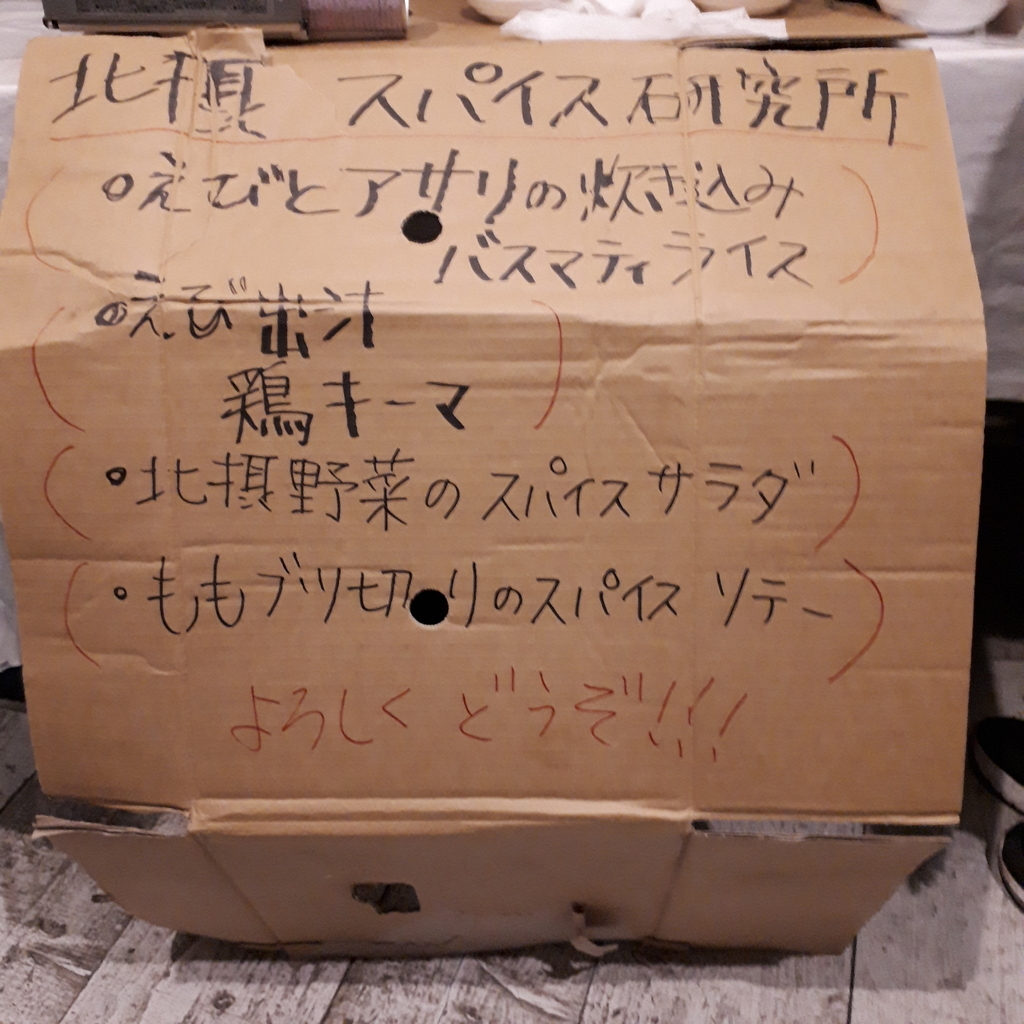 北摂 スパイス研究所
○えびとアサリの炊き込み
バスマティライス
○えび出汁
鶏キーマ
○北摂野菜のスパイスサラダ
○ももブツ切りのスパイス ソテー
よろしく どうぞ!!!